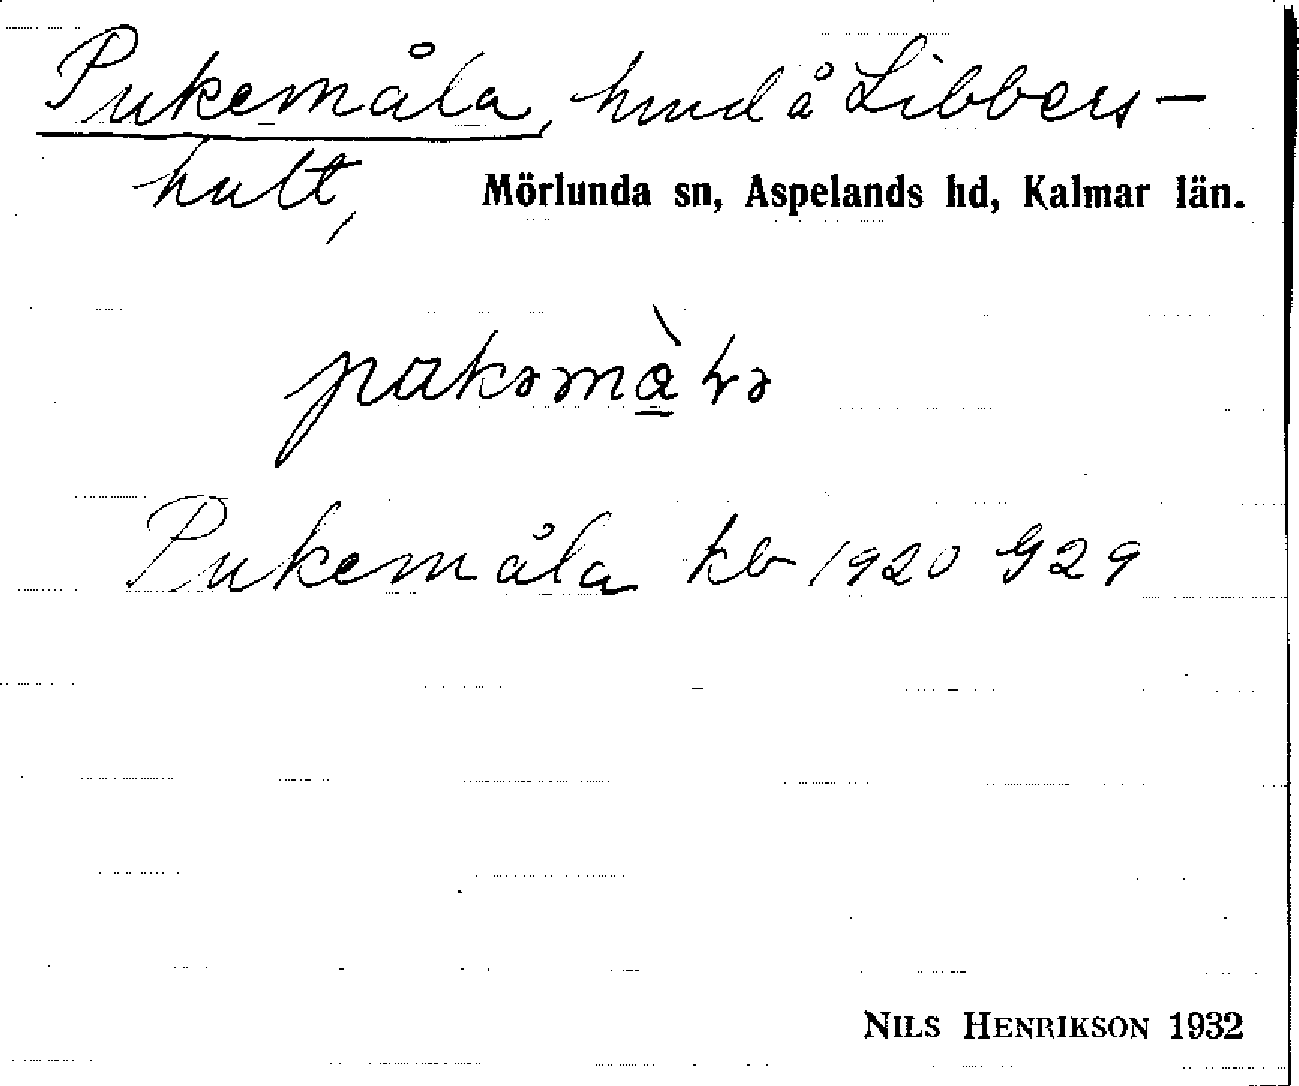 Pukemåla, hmd å Libbers-
hult,
Mörlunda sn, Aspelands hd, Kalmar län.
Pukemåla kb 1920 G29
NILS HENRIKSON 1932